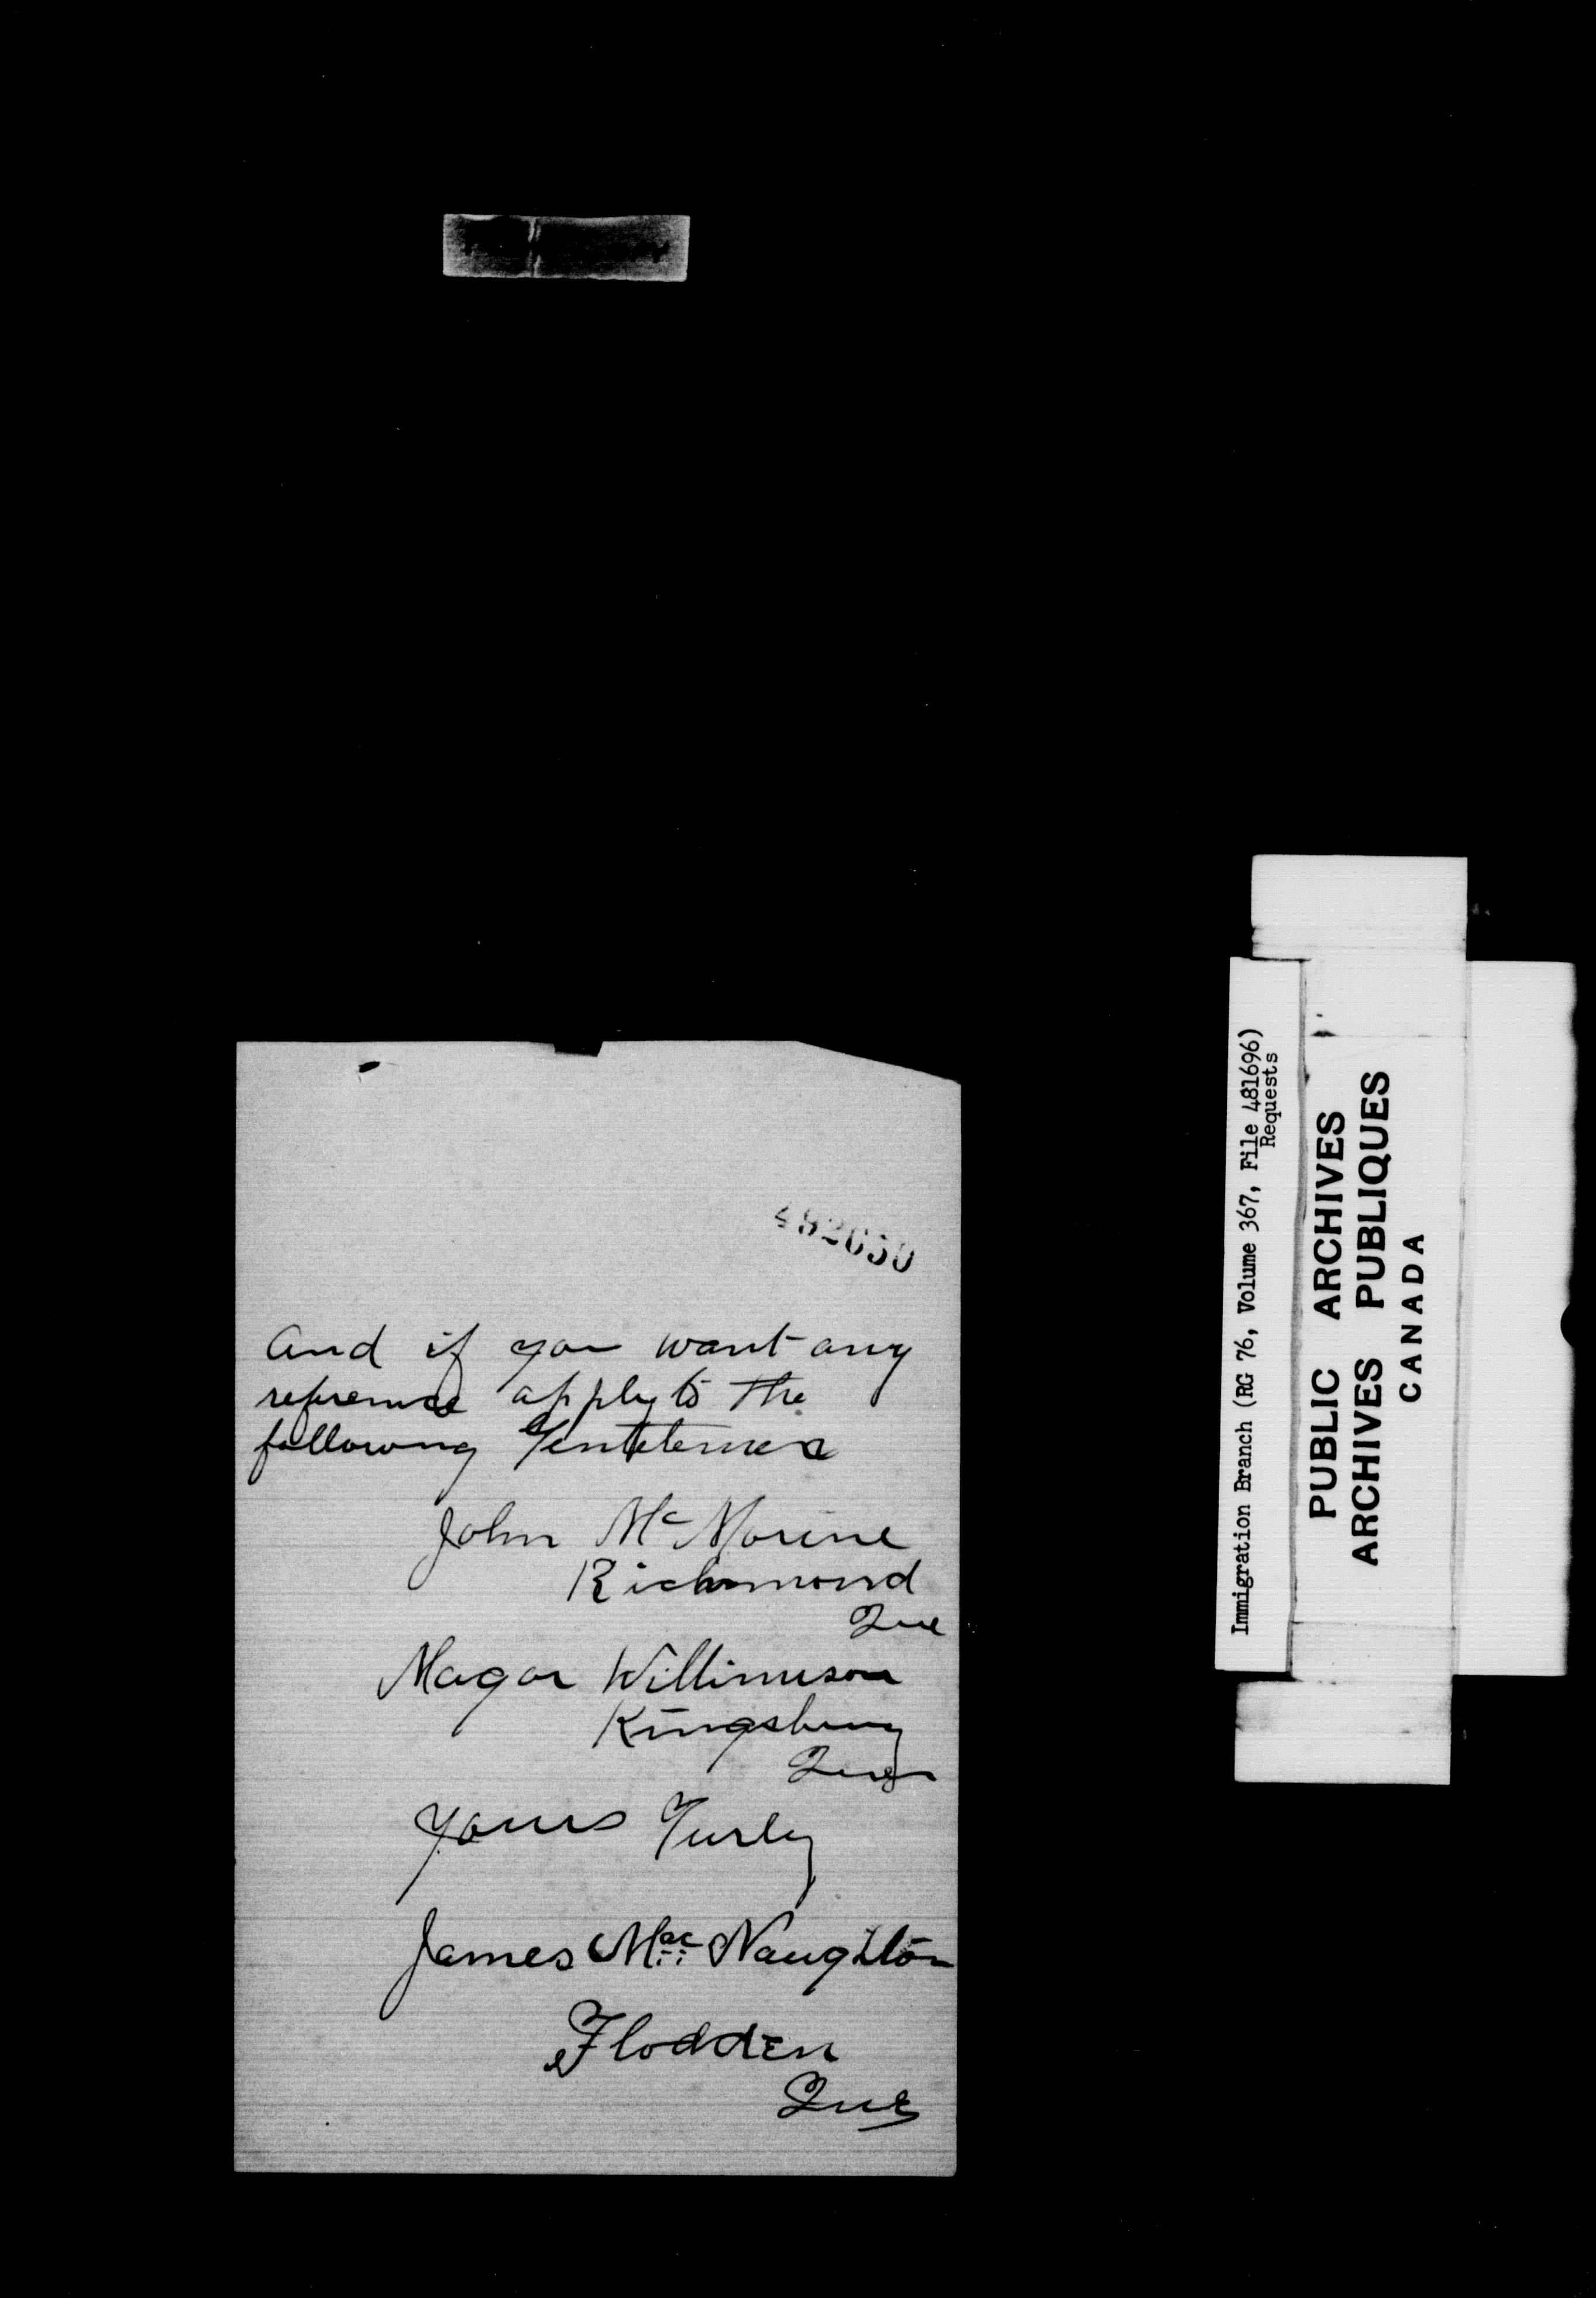 482650
And if you want any
refrence apply to the
following Gentelemen
John Mc Morine
Richmond
Que
Magor Willimson
Kingsbury
Que
Yours Turly
James Mac Naughton
Flodden
Que
Immigration Branch (RG 76, Volume 367, File 481696)
Requests
PUBLIC ARCHIVES
ARCHIVES PUBLIQUES
CANADA